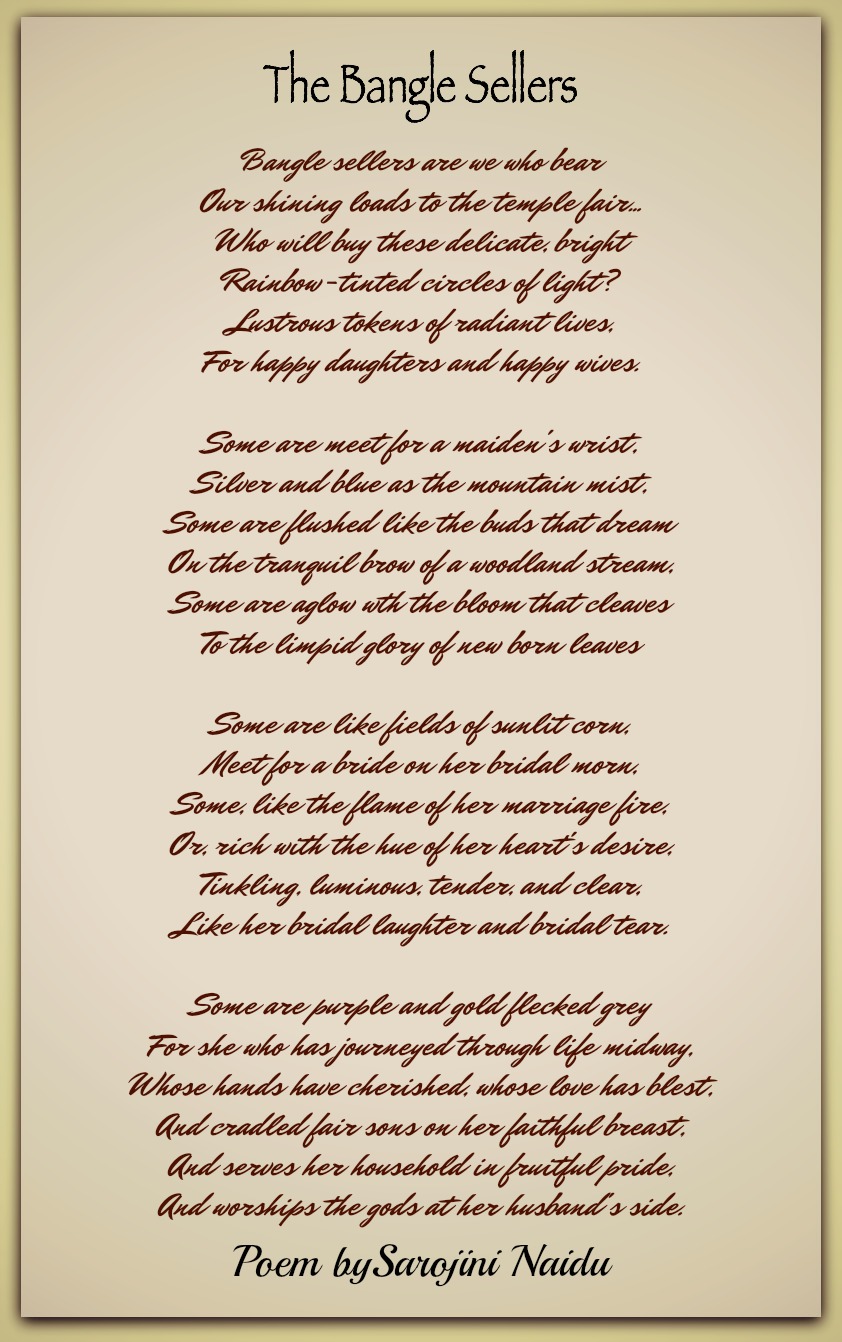 The Bangle Sellers
Bangle sellers are we who bear
Our shining loads to the temple fair...
Who will buy these delicate, bright
Rainbow-tinted circles of light?
Lustrous tokens of radiant lives,
For happy daughters and happy wives.
Some are meet for a maiden's wrist,
Silver and blue as the mountain mist,
Some are flushed like the buds that dream
On the tranquil brow of a woodland stream,
Some are aglow wth the bloom that cleaves
To the limpid glory of new born leaves
Some are like fields of sunlit corn,
Meet for a bride on her bridal morn,
Some, like the flame of her marriage fire,
Or, rich with the hue of her heart's desire,
Tinkling, luminous, tender, and clear,
Like her bridal laughter and bridal tear.
Some are purple and gold flecked grey
For she who has journeyed through life midway,
Whose hands have cherished, whose love has blest,
And cradled fair sons on her faithful breast,
And serves her household in fruitful pride,
And worships the gods at her husband's side.
Poem bySarojini Naidu